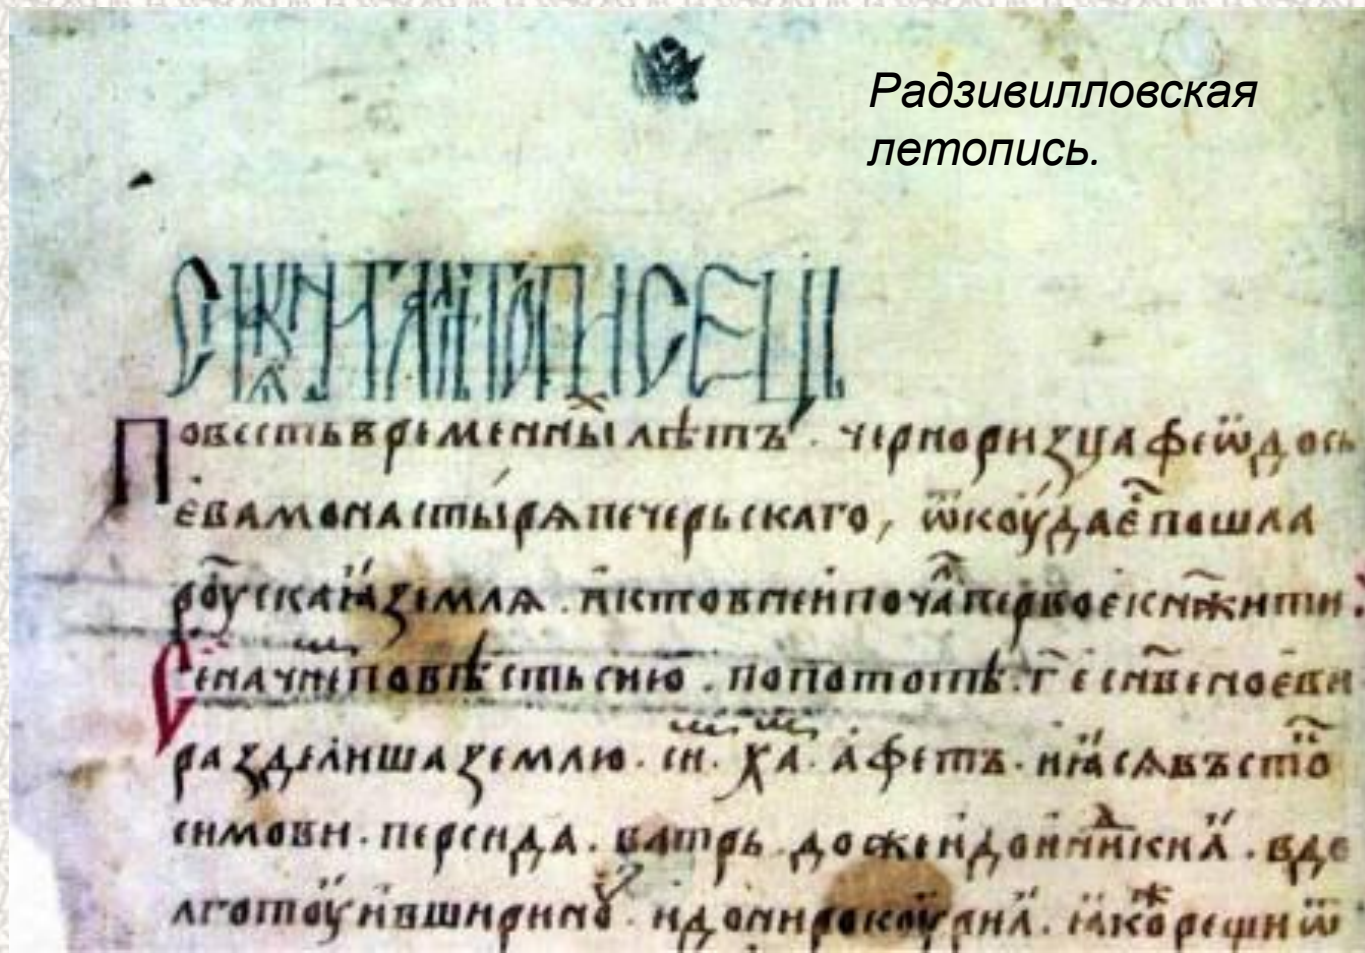 Радзивилловская
летопись.
Повесть временны х лѣтъ · черноризца феѡдось
ева манастырѧ печерьскаго, ѿкоудае пошла
роускаꙗ земля · и хто в неи поча первое кнжити
Се начне повѣсть сию · по потопѣ · г҃ е сн҃ве ноеви
раздѣлиша землю · си · ха · афетъ · и ꙗсѧ въсто
симови · персида · ватрь доже и до инъдикиꙗ · в до
лготоу и в ширину · и до нирокоуриꙗ · ꙗко рещи ѿ